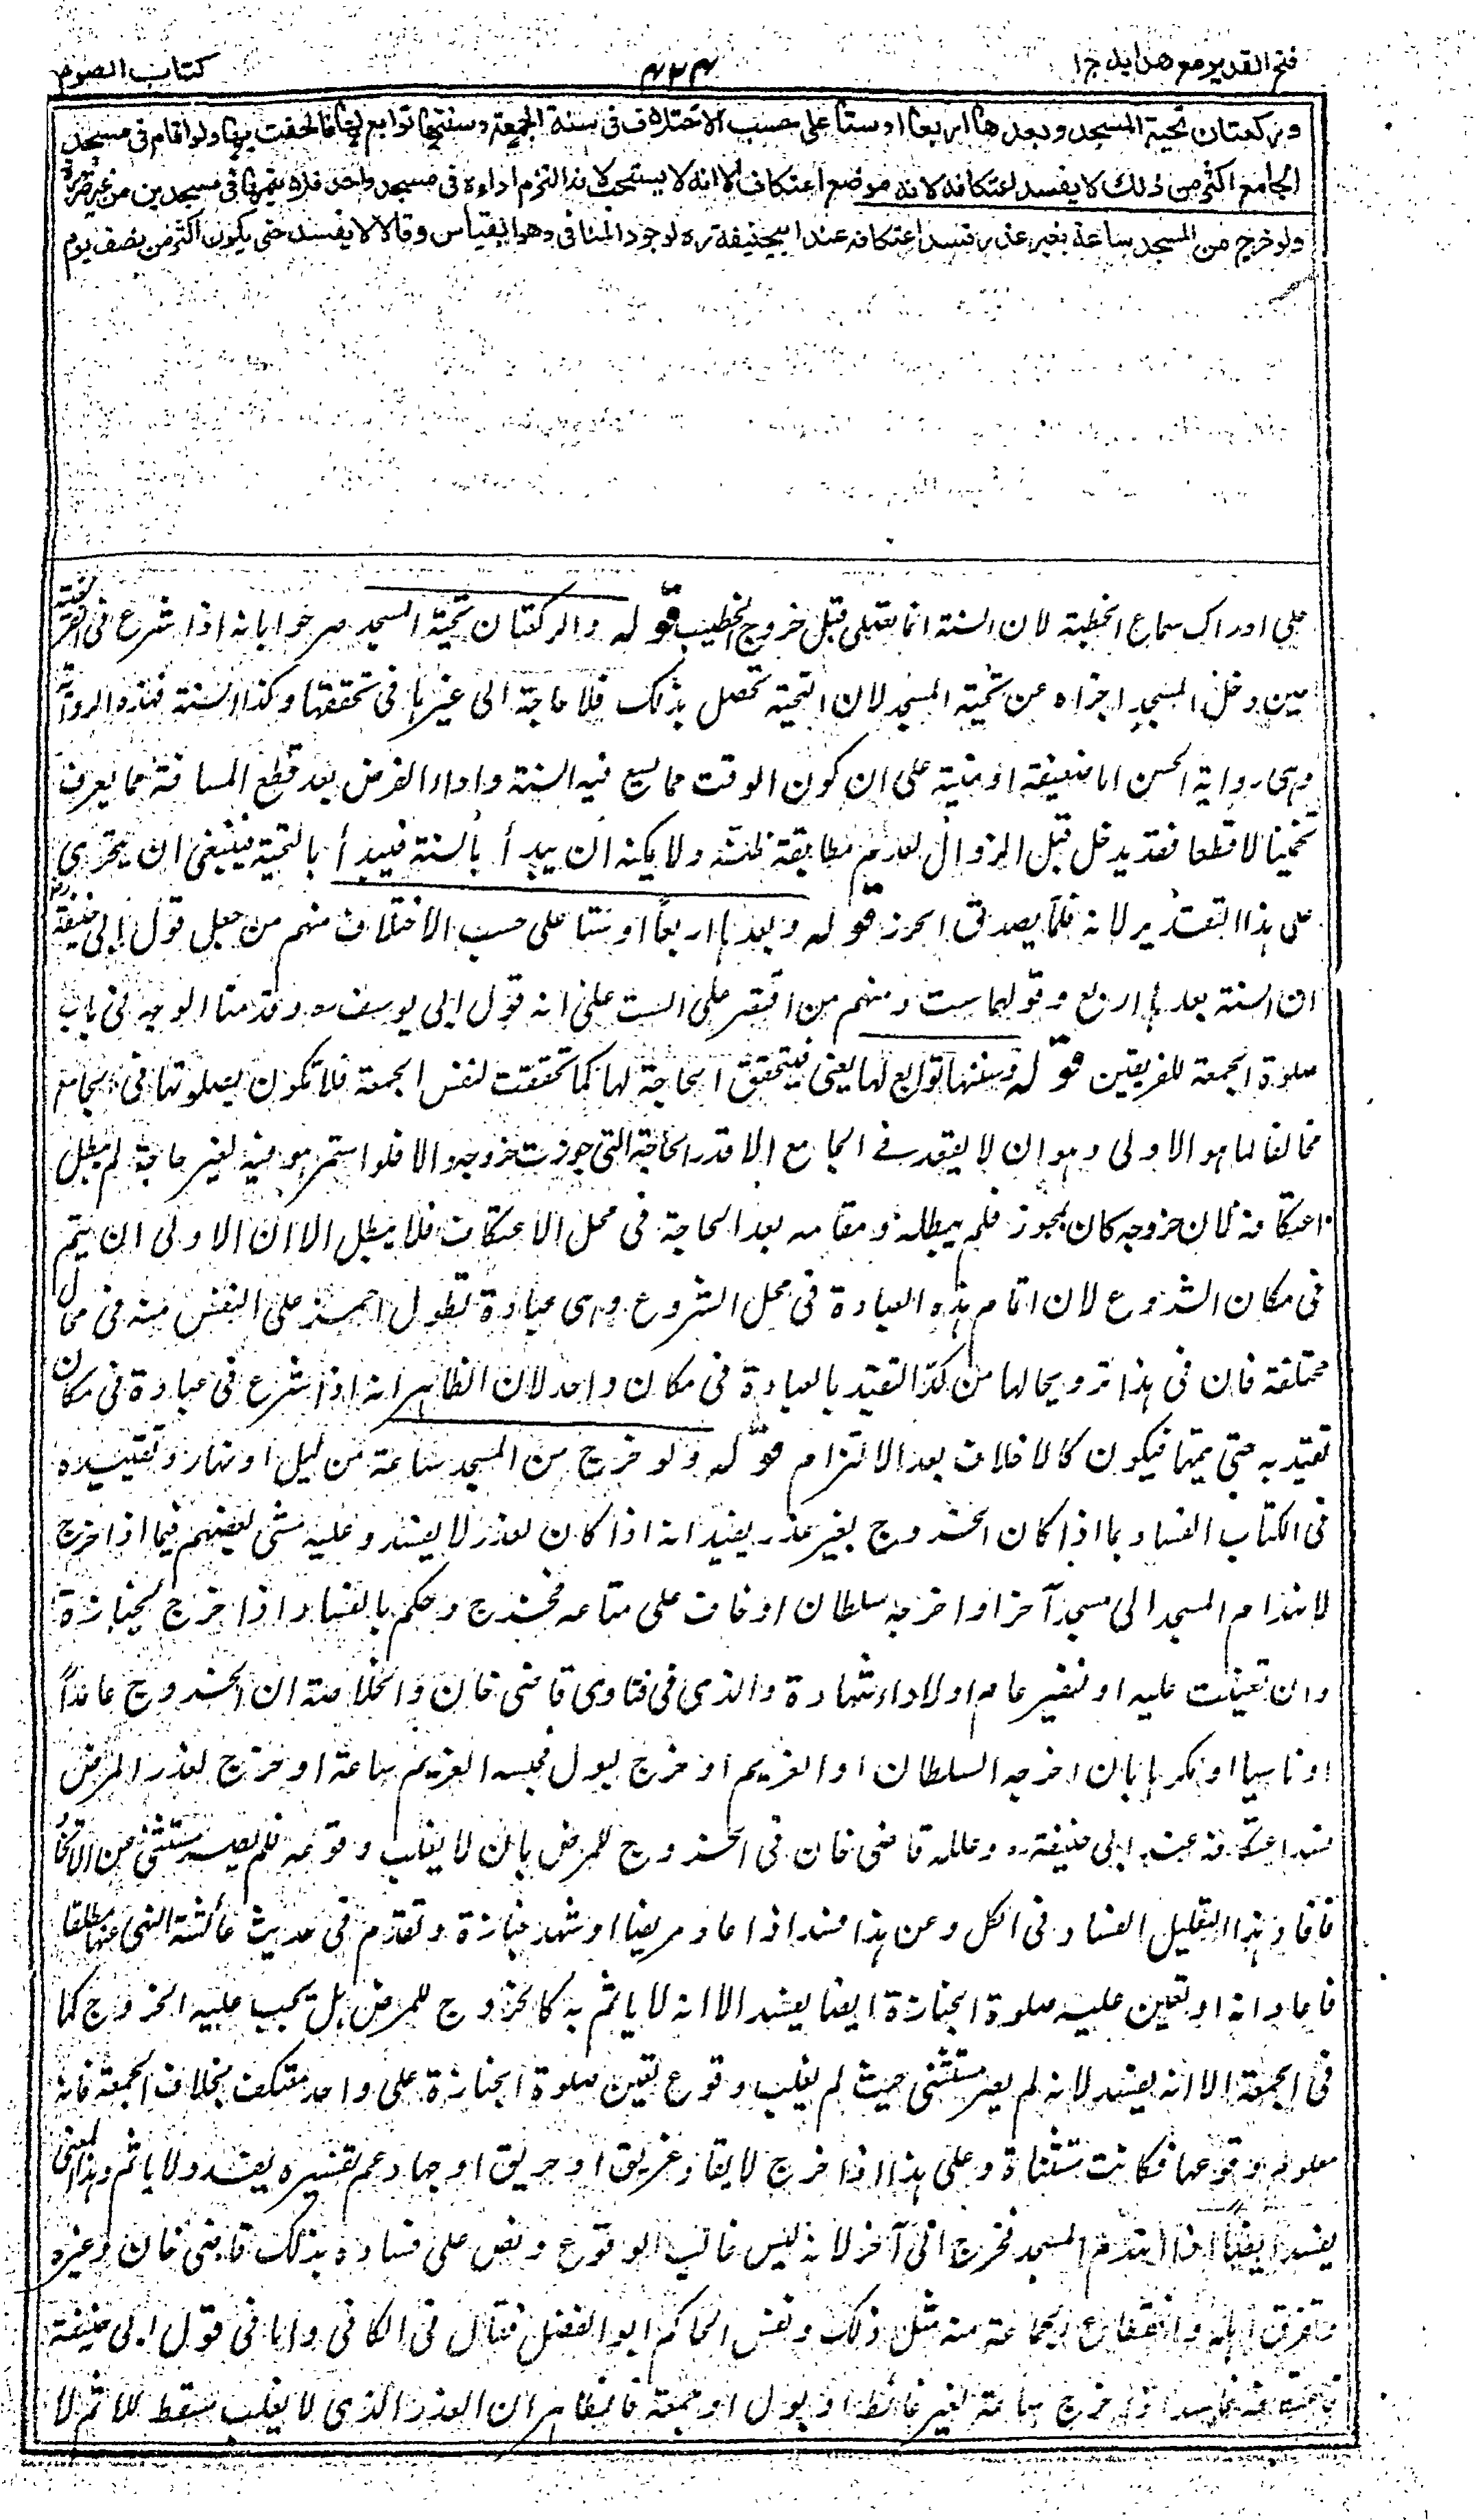 فتح القدير مع هدايه ج ا
۴۲۴
كتاب الصوم
وركعتان تحية المسجد وبعدها اربعا اوستا على حسب الاختلاف فى سنة الجمعة وسننها توابع لها فالحقت بها ولو اقام فى مسجد
الجامع اكثر من ذلك لا يفسد اعتكافه لانه موضع اعتكاف الا انه لا يستحب لانه التزم اداءه فى مسجد واحد فلا يتمها فى مسجدين من غير ضرورة
ولو خرج من المسجد ساعة بغير عذر فسد اعتكافه عند ابيحنيفة ره لوجود المنافى وهو القياس وقالا لا يفسد حتى يكون اكثر من نصف يوم
على ادراك سماع الخطبة لان السنة انما تصلى قبل خروج الخطيب قوله والركعتان تحية المسجد صرحوا بانه اذا شرع فى الفريضة
حين دخل المسجد اجزاه عن تحية المسجد لان التحية تحصل بذلك فلا حاجة الى غيرها فى تحققها وكذا السنة فهذه الرواية
وهى رواية الحسن اما ضعيفة او مبنية على ان كون الوقت مما يسع فيه السنة واداء الفرض بعد قطع المسافة مما يعرف
تخمينا لا قطعا فقد يدخل قبل الزوال لعدم مطابقة ظنه ولا يمكنه ان يبدأ بالسنة فيبدأ بالتحية فينبغى ان يتحرى
على هذا التقدير لانه قلما يصدق الحزر قوله وبعدها اربعاً او ستا على حسب الاختلاف منهم من جعل قول ابى حنيفة رض
ان السنة بعدها اربع وقولهما ست ومنهم من اقتصر على الست على انه قول ابى يوسف ره وقدمنا الوجه فى باب
صلوة الجمعة للفريقين قوله وسننها توابع لها يعنى فيتحقق الحاجة لها كما تحققت لنفس الجمعة فلا تكون بصلوتها فى الجامع
مخالفا لما هو الاولى وهو ان لا يقعد فى الجامع الا قدر الحاجة التى جوزت خروجه والا فلو استمر هو فيه لغير حاجة لم يبطل
اعتكافه لان خروجه كان لمجوز فلم يبطله ومقامه بعد الحاجة فى محل الاعتكاف فلا يبطل الا ان الاولى ان يتم
فى مكان الشروع لان اتمام هذه العبادة فى محل الشروع وهى عبادة تطول احمز على النفس منه فى محال
مختلفة فان فى هذا ترويحا لها من كدّ التقيد بالعبادة فى مكان واحد لان الظاهر انه اذا شرع فى عبادة فى مكان
تقيد به حتى يتمها فيكون كالاخلاف بعد الالتزام قوله ولو خرج من المسجد ساعة من ليل او نهار وتقييده
فى الكتاب الفساد بما اذا كان الخروج بغير عذر يفيد انه اذا كان لعذر لا يفسد وعليه مشى بعضهم فيما اذا خرج
لانهدام المسجد الى مسجد آخر او اخرجه سلطان او خاف على متاعه فخرج وحكم بالفساد اذا خرج لجنازة
وان تعينت عليه او لنفير عام او لاداء شهادة والذى فى فتاوى قاضى خان والخلاصة ان الخروج عامداً
او ناسيا او مكرها بان اخرجه السلطان او الغريم او خرج لبول فحبسه الغريم ساعة او خرج لعذر المرض
فسد اعتكافه عند ابى حنيفة ره وعلله قاضى خان فى الخروج للمرض بان لا يغلب وقوعه فلم يصر مستثنى عن الايجاب
فافاد هذا التعليل الفساد فى الكل وعن هذا فسد اذا عاد مريضا او شهد جنازة وتقدم فى حديث عائشة النهى عنهما مطلقا
فافاد انه لو تعين عليه صلوة الجنازة ايضا يفسد الا انه لا ياثم به كالخروج للمرض بل يجب عليه الخروج كما
فى الجمعة الا انه يفسد لانه لم يصر مستثنى حيث لم يغلب وقوع تعين صلوة الجنازة على واحد معتكف بخلاف الجمعة فانه
معلوم وقوعها فكانت مستثناة وعلى هذا اذا خرج لانقاذ غريق او حريق او جهاد عم نفيره يفسد ولا ياثم وهذا المعنى
يفسد ايضا اذا انهدم المسجد فخرج الى آخر لانه ليس غالب الوقوع ونص على فساده بذلك قاضى خان وغيره
وتفرق اهله وانقطاع الجماعة منه مثل ذلك ونص الحاكم ابو الفضل فقال فى الكافى واما فى قول ابى حنيفة
فاعتكافه فاسد اذا خرج ساعة لغير غائط او بول او جمعة فالظاهر ان العذر الذى لا يغلب مسقط للاثم لا